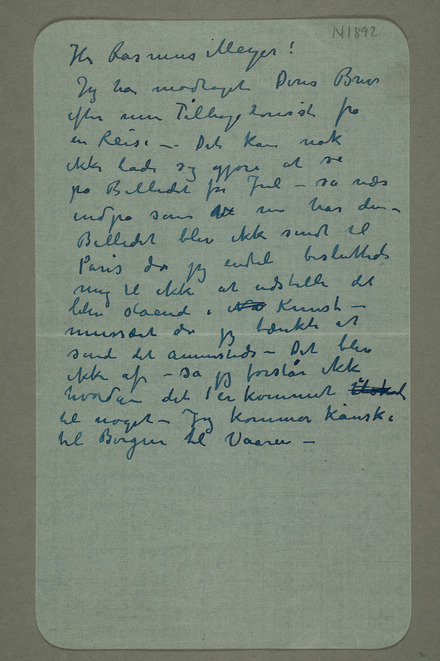 N1892
Hr Rasmus Meyer!
Jeg har modtaget Deres Brev
efter min Tilbagekomst fra
en Reise – Det kan nok
ikke lade sig gjøre at se
på Billedet før Jul – så nær
indpå som vi nu har den –
Billedet blev ikke sendt til
Paris da jeg endelig besluttede
mig til ikke at udstille det
blev staaend i Kunst-
museet da jeg tænkte at
send det annensteds – Det blev
ikke af – så jeg forstår ikke
hvordan det er kommet
til noget – Jeg kommer kanske
til Bergen til Vaaren –